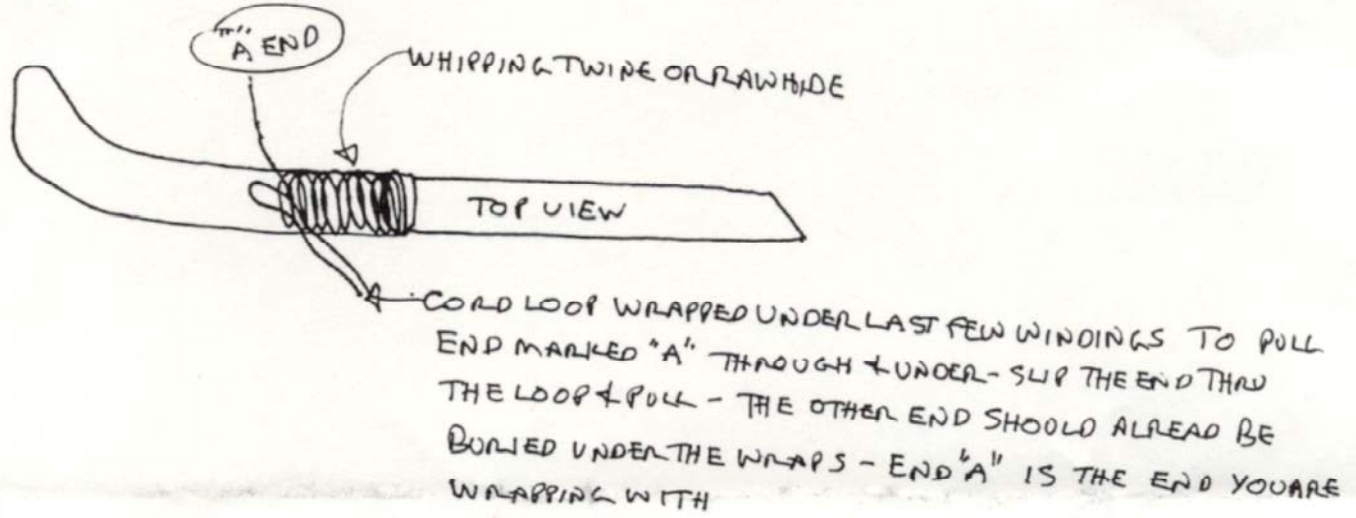 "A END
WHIPPING TWINE OR RAWHIDE
TOP VIEW
CORD LOOP WRAPPED UNDER LAST FEW WINDINGS TO PULL
END MARKED "A" THROUGH & UNDER - SLIP THE END THRU
THE LOOP & PULL - THE OTHER END SHOOLD ALREAD BE
BURIED UNDER THE WRAPS - END "A" IS THE END YOU ARE
WRAPPING WITH